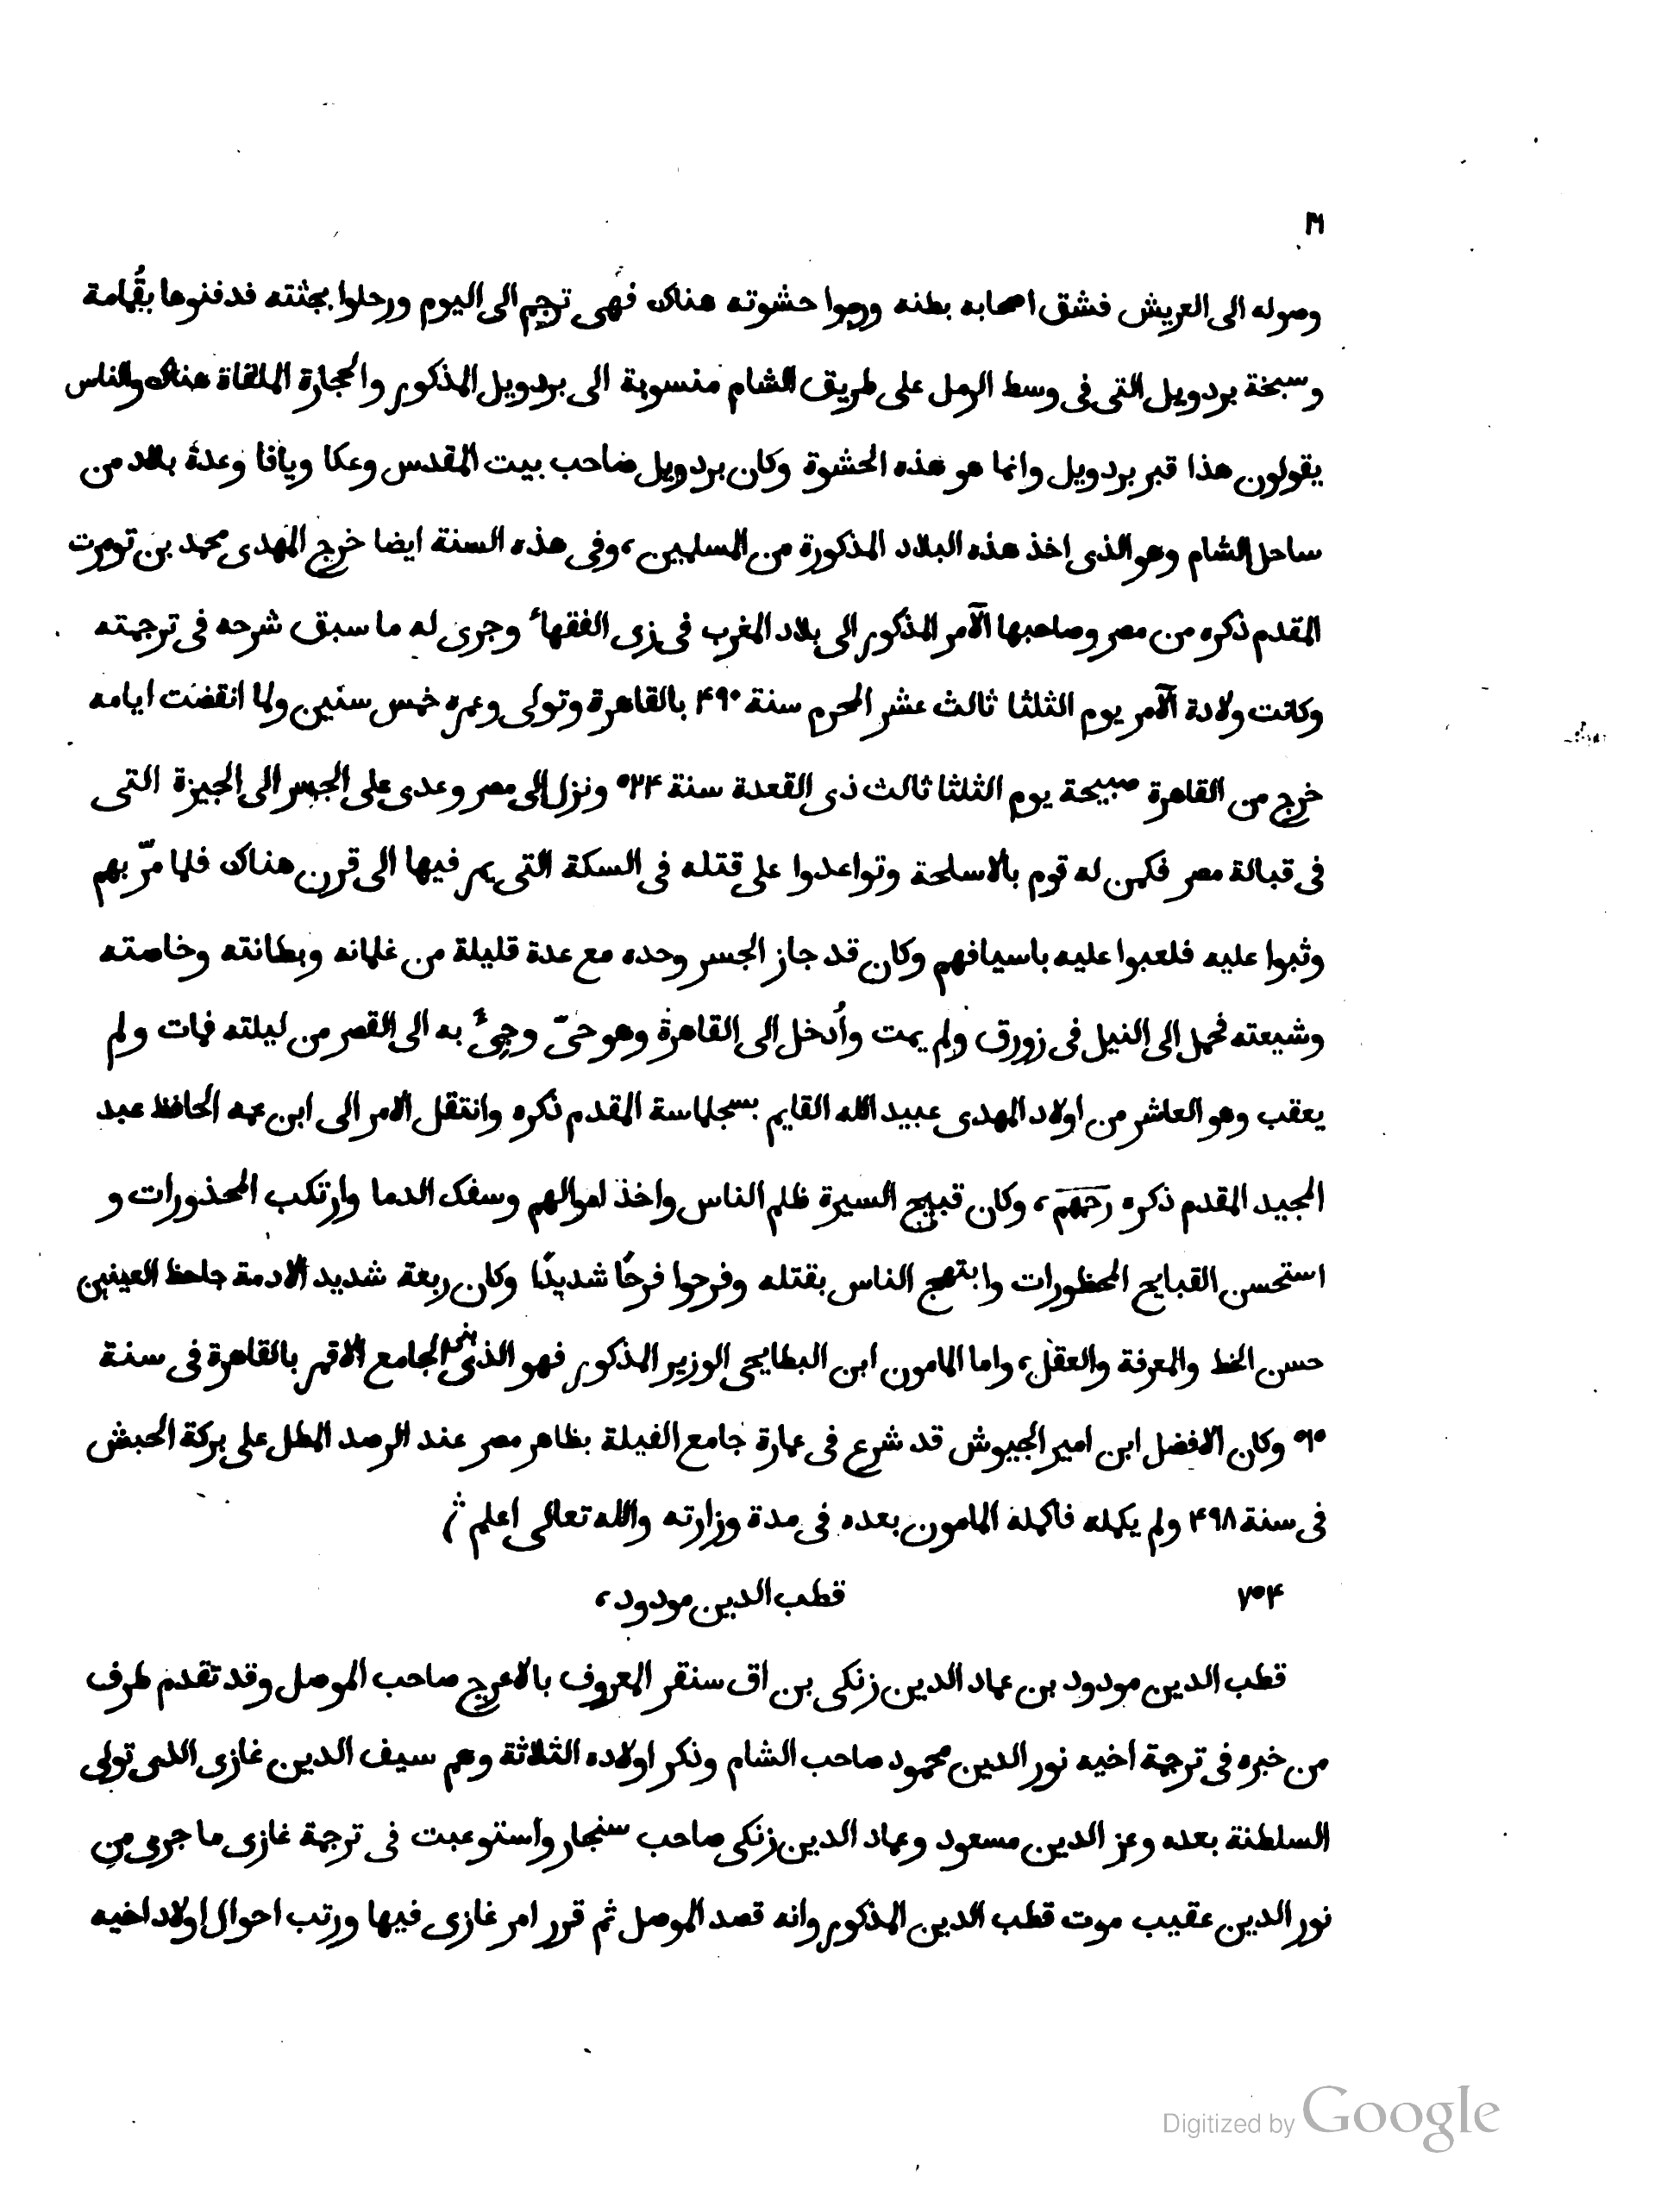 وصوله الى العريش فشق اصحابه بطنه ورموا حشوته هناك فهى ترجم الى اليوم ورحلوا بجثته فدفنوها بقُمامة
وسبخة بردويل التى فى وسط الرمل على طريق الشام منسوبة الى بردويل المذكور والحجارة الملقاة هناك والناس
يقولون هذا قبر بردويل وانما هو هذه الحشوة وكان بردويل صاحب بيت المقدس وعكا ويافا وعدة بلاد من
ساحل الشام وهو الذى اخذ هذه البلاد المذكورة من المسلمين، وفى هذه السنة ايضا خرج المهدى محمد بن تومرت
المقدم ذكره من مصر وصاحبها الآمر المذكور الى بلاد المغرب فى زى الفقهاء وجرى له ما سبق شرحه فى ترجمته
وكانت ولادة الآمر يوم الثلثا ثالث عشر المحرم سنة ۴۹۰ بالقاهرة وتولى وعمره خمس سنين ولما انقضت ايامه
خرج من القاهرة صبيحة يوم الثلثا ثالث ذى القعدة سنة ۵۲۴ ونزل الى مصر وعدى على الجسر الى الجيزة التى
فى قبالة مصر فكمن له قوم بالاسلحة وتواعدوا على قتله فى السكة التى يمر فيها الى قرن هناك فلما مرّ بهم
وثبوا عليه فلعبوا عليه باسيافهم وكان قد جاز الجسر وحده مع عدة قليلة من غلمانه وبطانته وخاصته
وشيعته فحمل الى النيل فى زورق ولم يمت وأدخل الى القاهرة وهو حىّ وجىء به الى القصر من ليلته فمات ولم
يعقب وهو العاشر من اولاد المهدى عبيد الله القايم بسجلماسة المقدم ذكره وانتقل الامر الى ابن عمه الحافظ عبد
المجيد المقدم ذكره رحمهم، وكان قبيح السيرة ظلم الناس واخذ اموالهم وسفك الدما وارتكب المحذورات و
استحسن القبايح المحظورات وابتهج الناس بقتله وفرحوا فرحًا شديدًا وكان ربعة شديد الادمة جاحظ العينين
حسن الخط والمعرفة والعقل، واما المامون ابن البطايحى الوزير المذكور فهو الذى بنى الجامع الاقمر بالقاهرة فى سنة
۵۱۵ وكان الافضل ابن امير الجيوش قد شرع فى عمارة جامع الفيلة بظاهر مصر عند الرصد المطل على بركة الحبش
فى سنة ۴۹۸ ولم يكمله فاكمله المامون بعده فى مدة وزارته والله تعالى اعلم
۷۵۴ قطب الدين مودود،
قطب الدين مودود بن عماد الدين زنكى بن اق سنقر المعروف بالاعرج صاحب الموصل وقد تقدم طرف
من خبره فى ترجمة اخيه نور الدين محمود صاحب الشام وذكر اولاده الثلاثة وهم سيف الدين غازى الذى تولى
السلطنة بعده وعز الدين مسعود وعماد الدين زنكى صاحب سنجار واستوعبت فى ترجمة غازى ما جرى من
نور الدين عقيب موت قطب الدين المذكور وانه قصد الموصل ثم قرر امر غازى فيها ورتب احوال اولاد اخيه
Digitized by Google